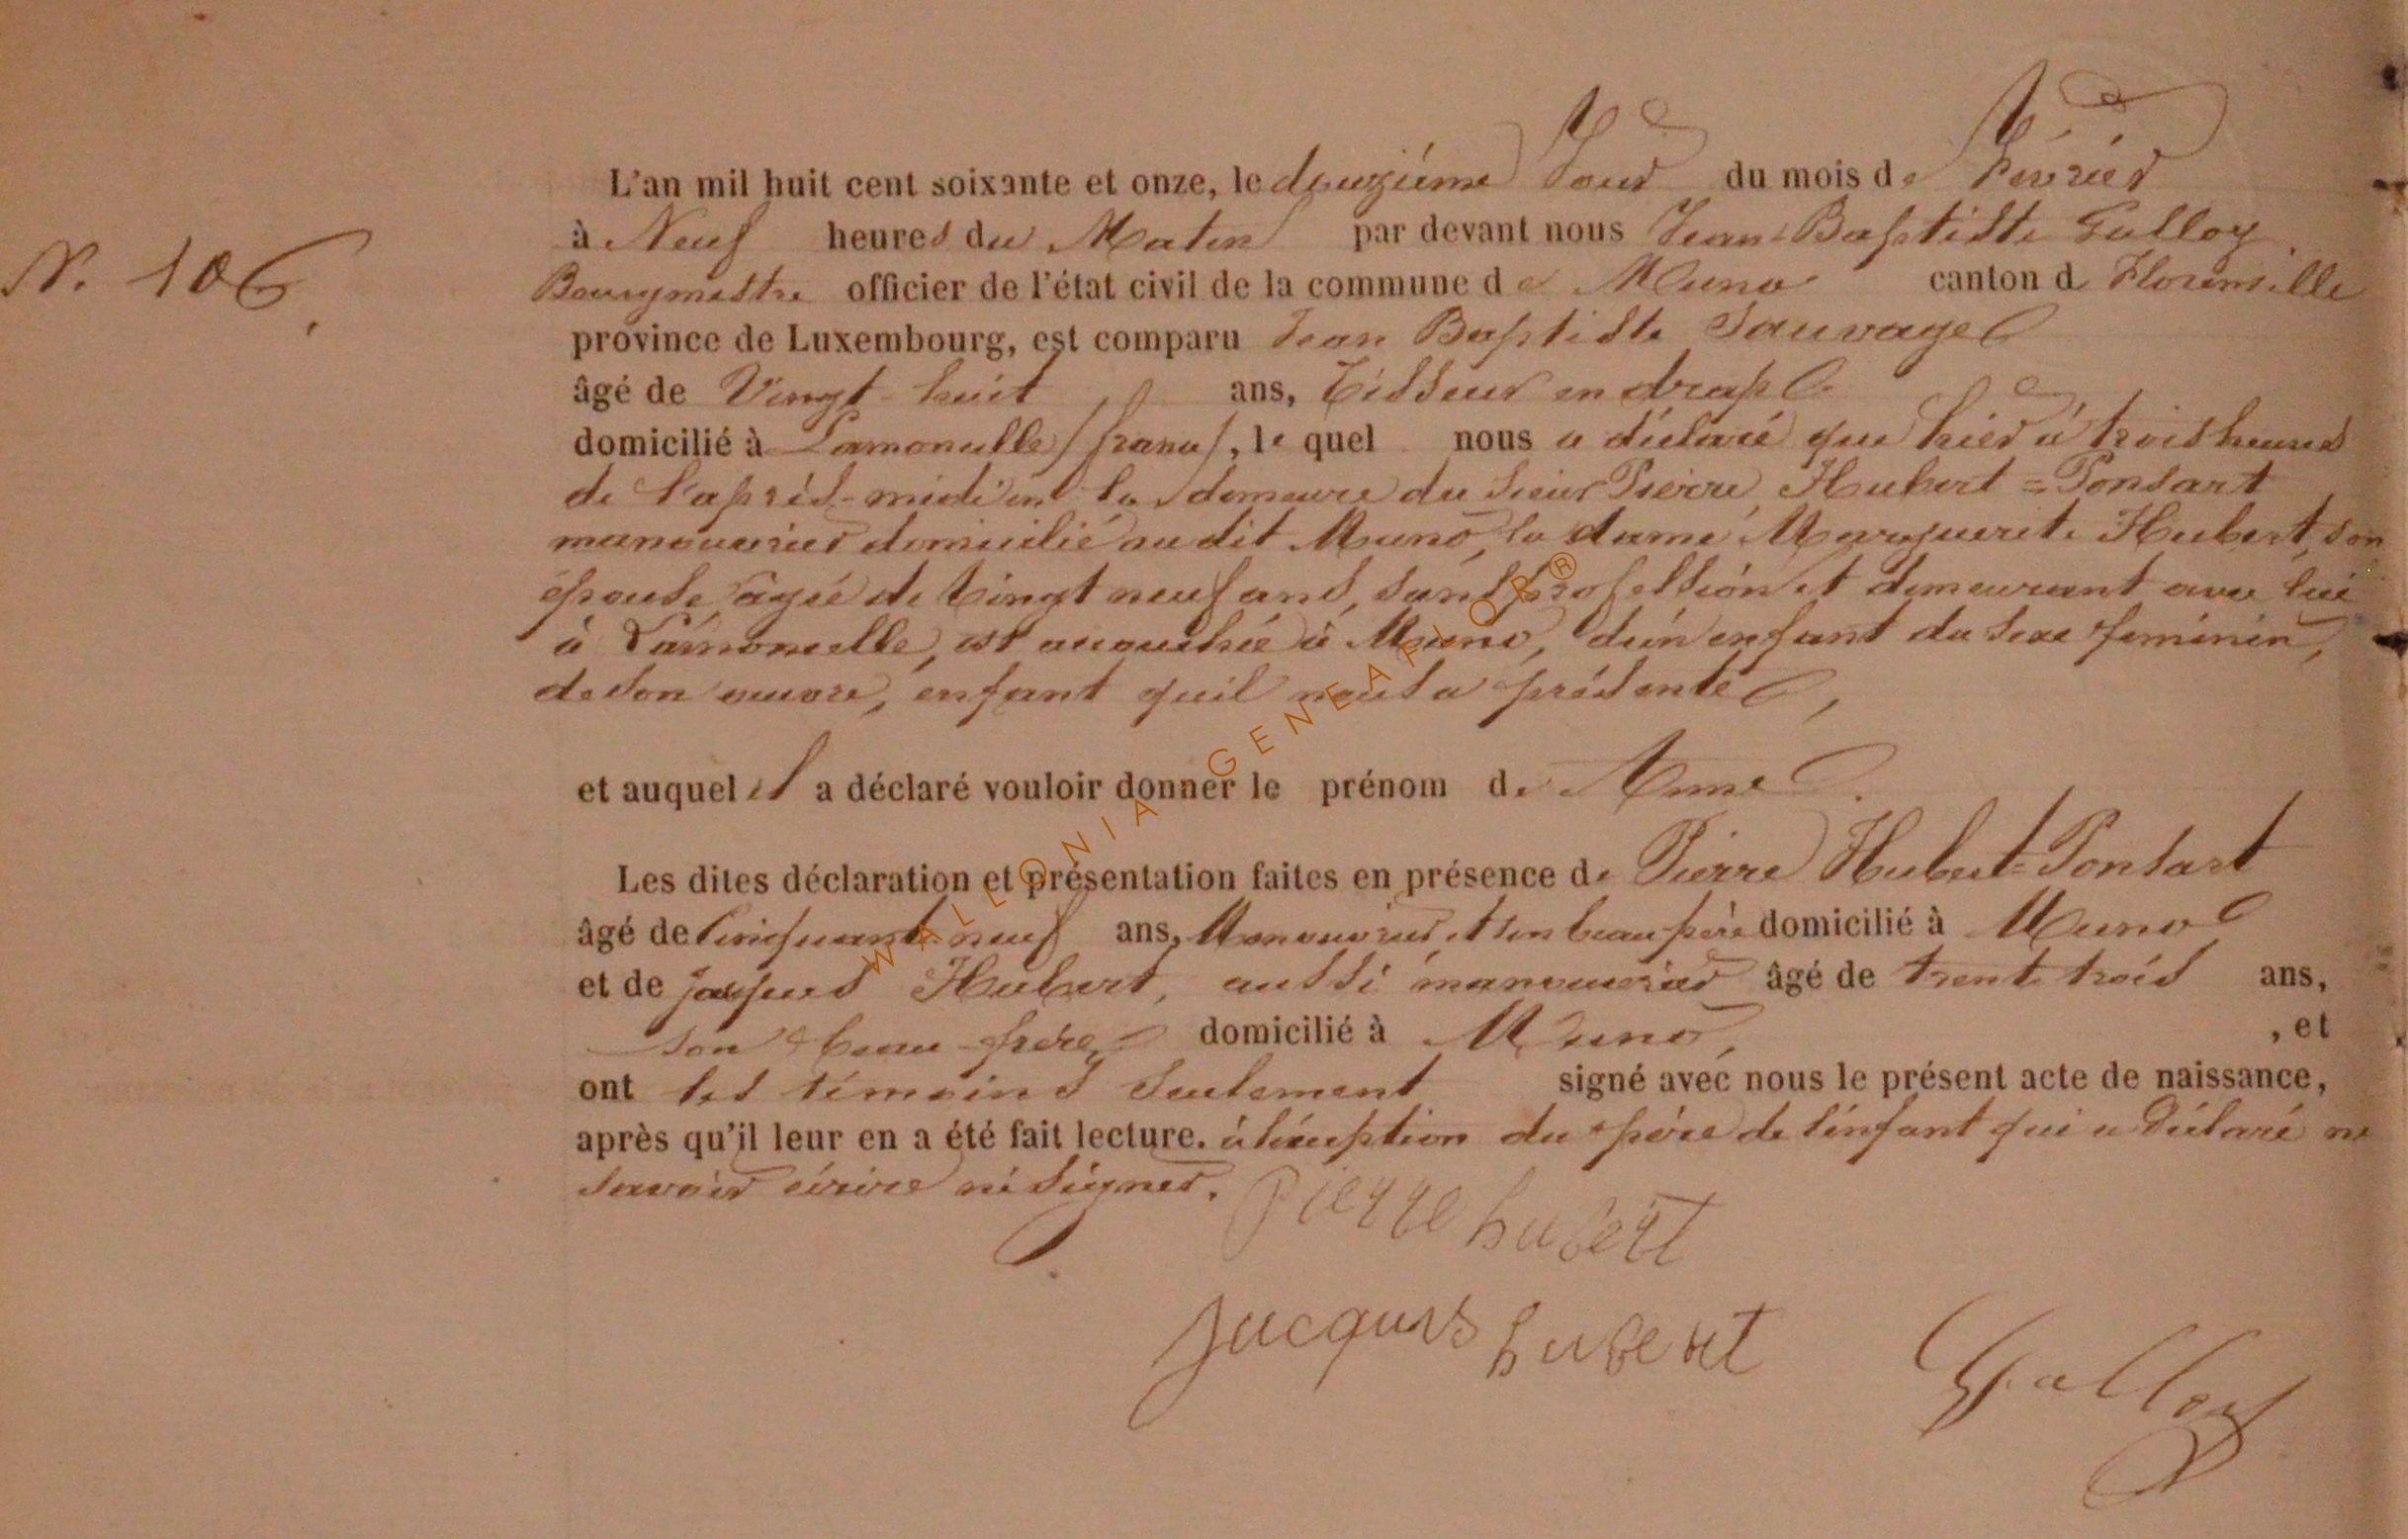 N. 106.
L'an mil huit cent soixante et onze, le deuxiéme Jour du mois de Février
à Neuf heures du Matin par devant nous Jean Baptiste Galloy
Bourgmestre officier de l'état civil de la commune de Muno canton d Florenville
province de Luxembourg, est comparu Jean Baptiste Sauvage
âgé de Vingt-huit ans, Tisseur en drap
domicilié à Lamoncelle (france), le quel nous a déclaré que hier à trois heures
de l'après-midi en la demeure du Sieur Pierre, Hubert = Ponsart
manouvrier domicilié au dit Muno, la dame Marguerite Hubert, son
épouse, agée de Vingt neuf ans, sans profession et demeurant avec lui
à Lamoncelle, est accouchée à Muno, d'un enfant du sexe feminin,
de son œuvre, enfant qu'il nous a présenté,
et auquel il a déclaré vouloir donner le prénom de Anne.
Les dites déclaration et présentation faites en présence de Pierre Hubert = Ponsart
âgé de Cinquante-neuf ans, Manouvrier et son beau père domicilié à Muno
et de Jacques Hubert, aussi manouvrier âgé de trente trois ans,
son beau-frère, domicilié à Muno, , et
ont les témoins seulement signé avec nous le présent acte de naissance,
après qu'il leur en a été fait lecture. à l'éxception du père de l'enfant qui a Déclaré ne
savoir écrire ni signer.
Pierre hubert
jacques hubert
Galloy
WALLONIA GENEAFLOR®